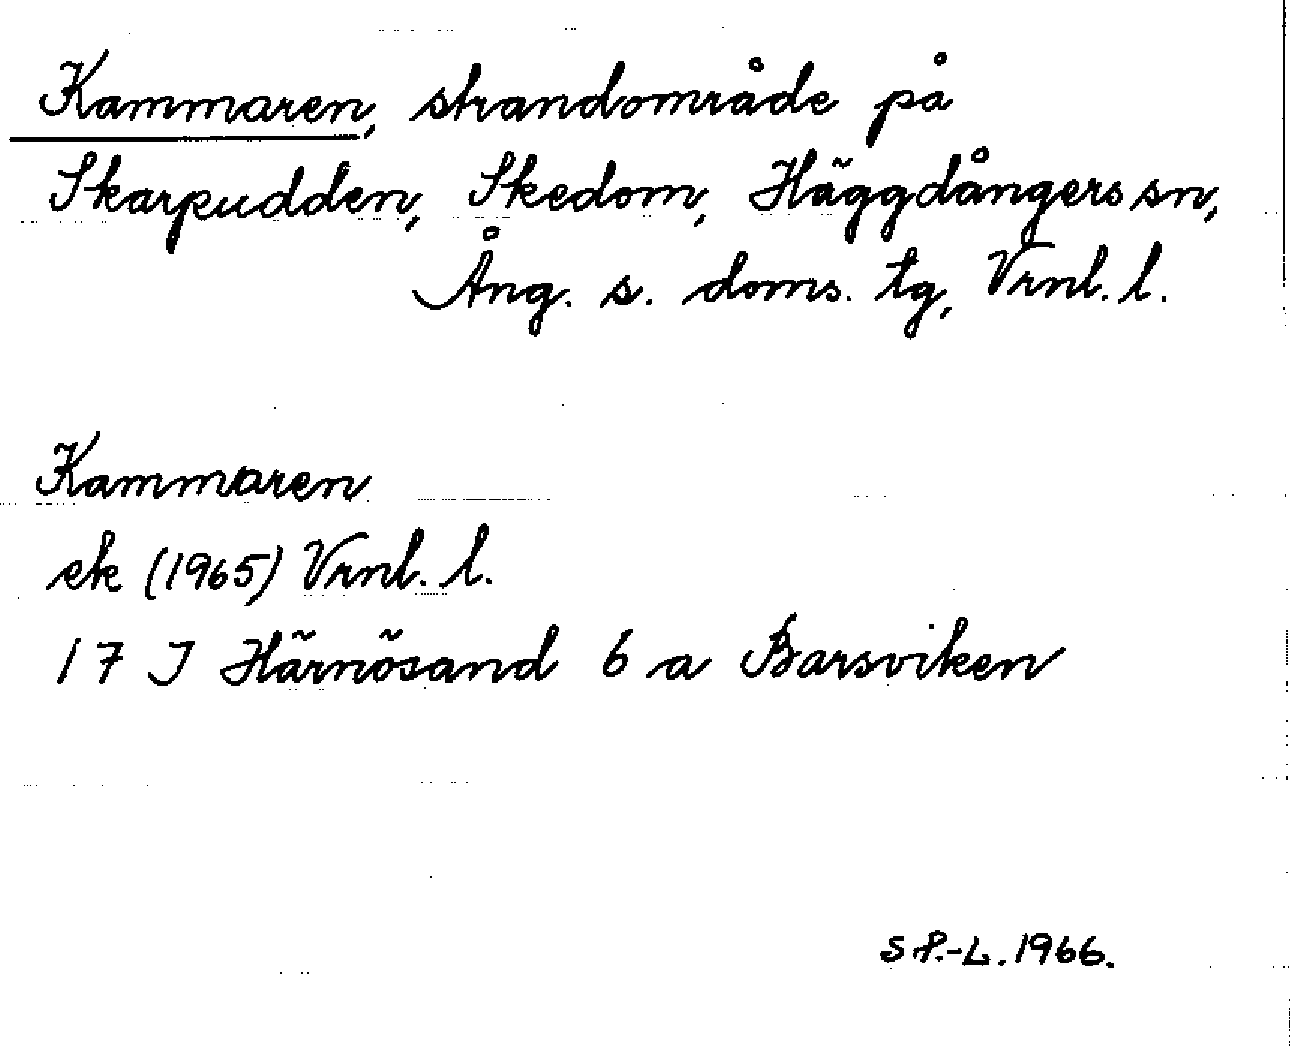 Kammaren, strandområde på
Skarpudden, Skedom, Häggdångers sn,
Ång. s. doms. tg, Vrnl. l.
Kammaren
ek (1965) Vrnl. l.
17 I Härnösand 6 a Barsviken
S P.-L. 1966.